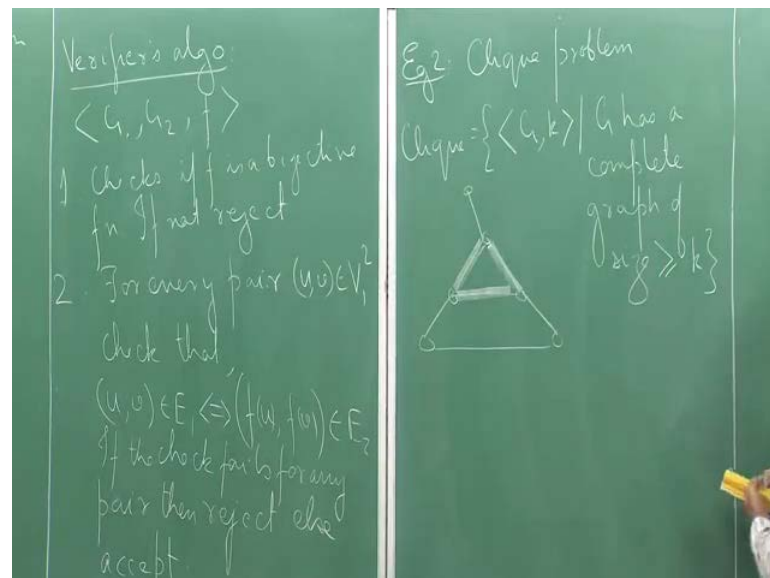 Verifier's algo:
< G₁, G₂, f >
1 Checks if f is a bijective
fn If not reject
2. For every pair (u,v) ∈ V₁²
check that,
(u,v) ∈ E₁ <=> (f(u), f(v)) ∈ E₂
If the check fails for any
pair then reject else
accept.
Eg 2: Clique problem
Clique = { < G, k > | G has a
complete
graph of
size ≥ k }